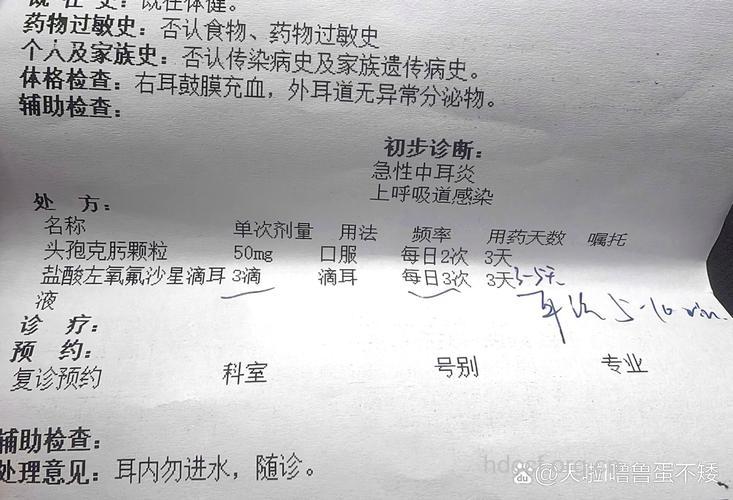 既往史：既往体健。
药物过敏史：否认食物、药物过敏史
个人及家族史：否认传染病史及家族遗传病史。
体格检查：右耳鼓膜充血，外耳道无异常分泌物。
辅助检查：
初步诊断：
急性中耳炎
上呼吸道感染
处 方：
名称 单次剂量 用法 频率 用药天数 嘱托
头孢克肟颗粒 50mg 口服 每日2次 3天
盐酸左氧氟沙星滴耳 3滴 滴耳 每日3次 3天 3-5天
液
耳浴 5-10 min.
诊 疗：
预 约：
复诊预约 科室 号别 专业
辅助检查：
处理意见：耳内勿进水，随诊。
@天啦噜鲁蛋不矮